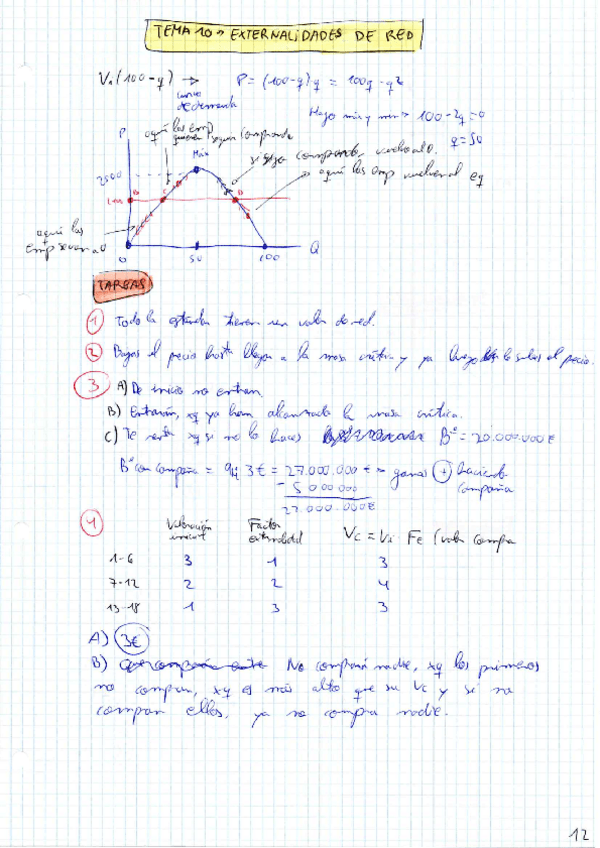 TEMA 10 → EXTERNALIDADES DE RED
V₁(100-q) → P = (100-q)q = 100q - q²
curva de demanda
Hago máx y mín → 100-2q=0
q=50
aquí las emp quieren seguir comprando
P
Máx
y sigo comprando
aquí las emp vuelven al eq
2500
B
C
D
aquí las emp se van a 0
0
50
100
Q
TAREAS
1 Todo la estándar tienen un valor de red.
2 Bajas el precio hasta llegar a la masa crítica y ya luego lo subes el precio.
3 A) De inicio no entran.
B) Entrarán, xq ya han alcanzado la masa crítica.
C) Te renta xq si no lo haces Bº = 20.000.000€
Bº con compañía = 9 3€ = 27.000.000€ → ganas + haciendo compañía
- 5 000 000
27.000.000€
4 Valoración inicial Factor externalidad Vc = Vi Fe (valor compra
1-6 3 1 3
7-12 2 2 4
13-18 1 3 3
A) 3€
B) No comprará nadie, xq los primeros
no compran, xq es más alto que su Vc y si no
compran ellos, ya no compra nadie.
12